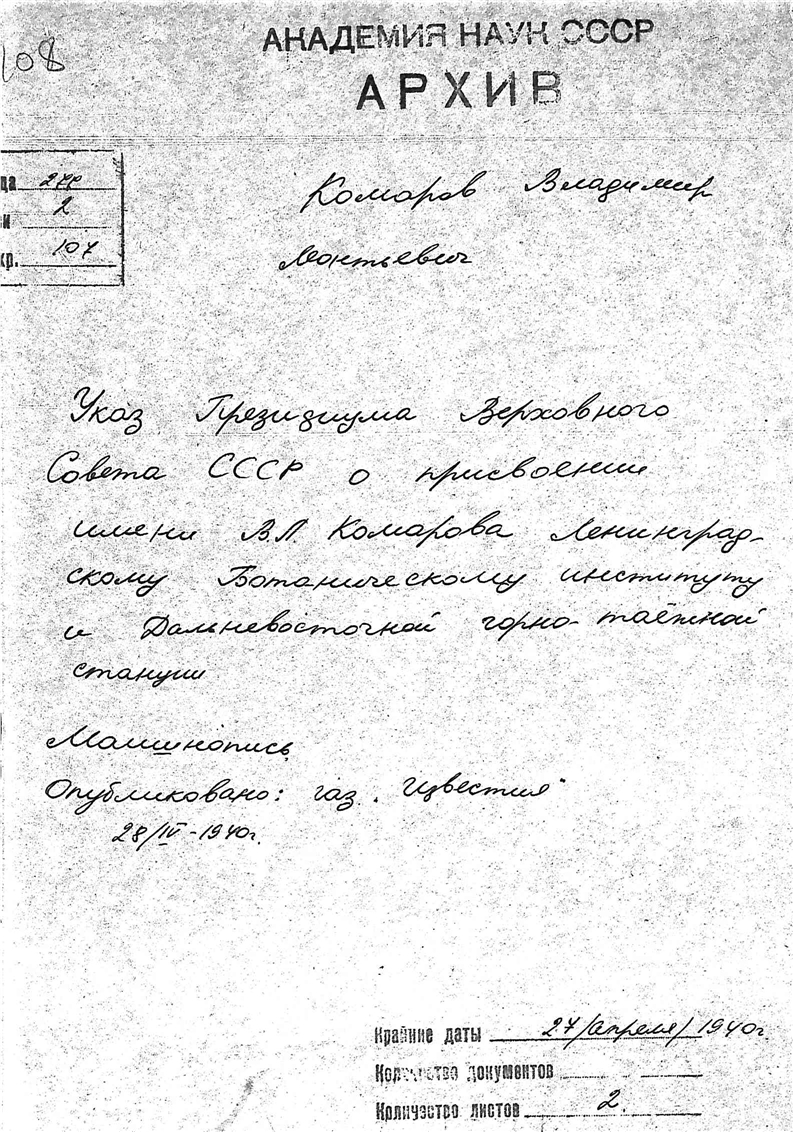 108
АКАДЕМИЯ НАУК СССР
АРХИВ
277
2
107
Комаров Владимир
Леонтьевич
Указ Президиума Верховного
Совета СССР о присвоении
имени В.Л. Комарова Ленинград-
скому Ботаническому институту
и Дальневосточной горно-таёжной
станции
Машинопись
Опубликовано: газ. "Известия"
28/IV-1940г.
Крайние даты 27/апреля/1940г.
Количество документов
Количество листов 2.